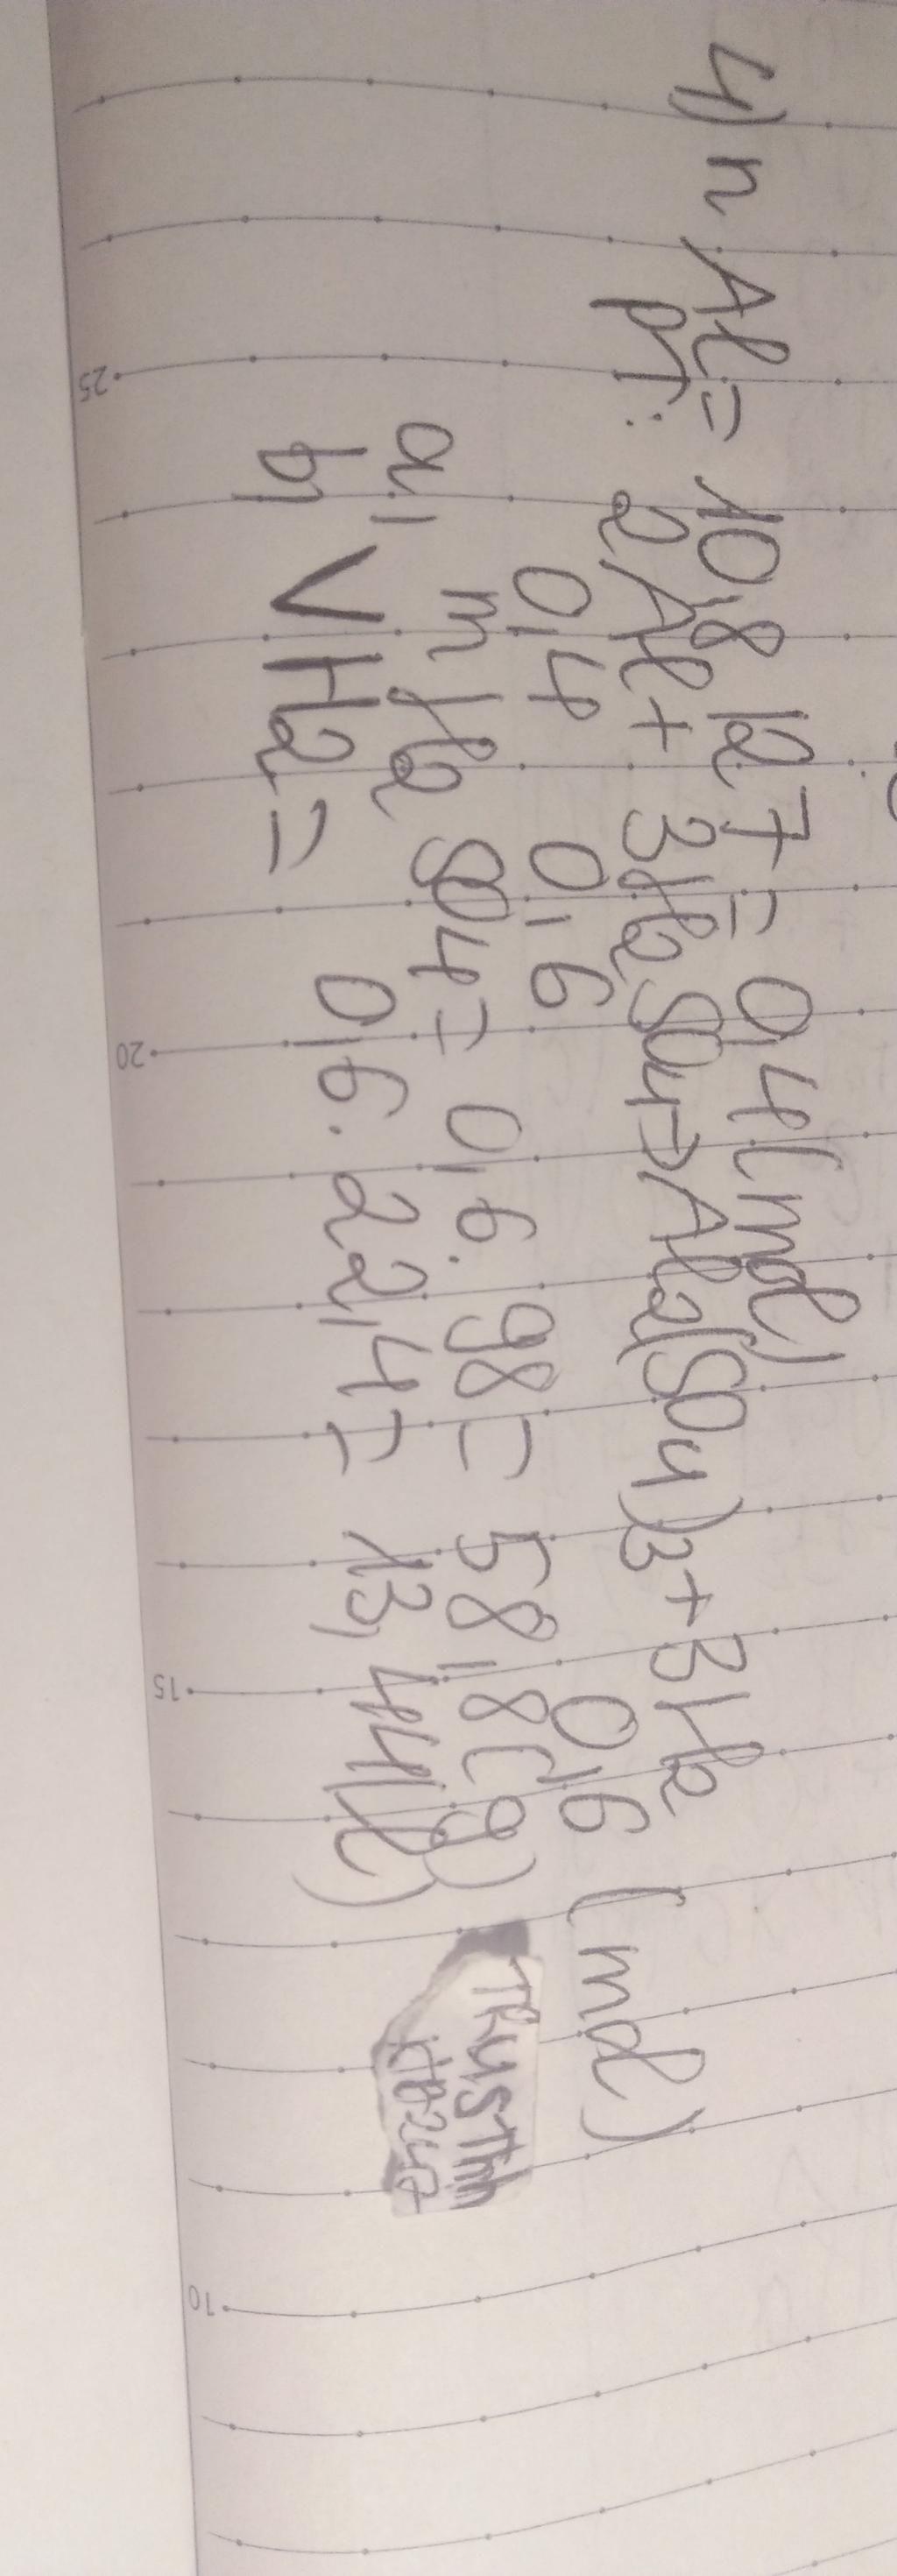 4) n Al = 10,8 : 27 = 0,4 (mol)
PT: 2Al + 3H2SO4 → Al2(SO4)3 + 3H2
0,4 0,6 0,6 (mol)
a, m H2SO4 = 0,6 . 98 = 58,8 (g)
b, VH2 = 0,6 . 22,4 = 13,44 (l)
25
20
15
10